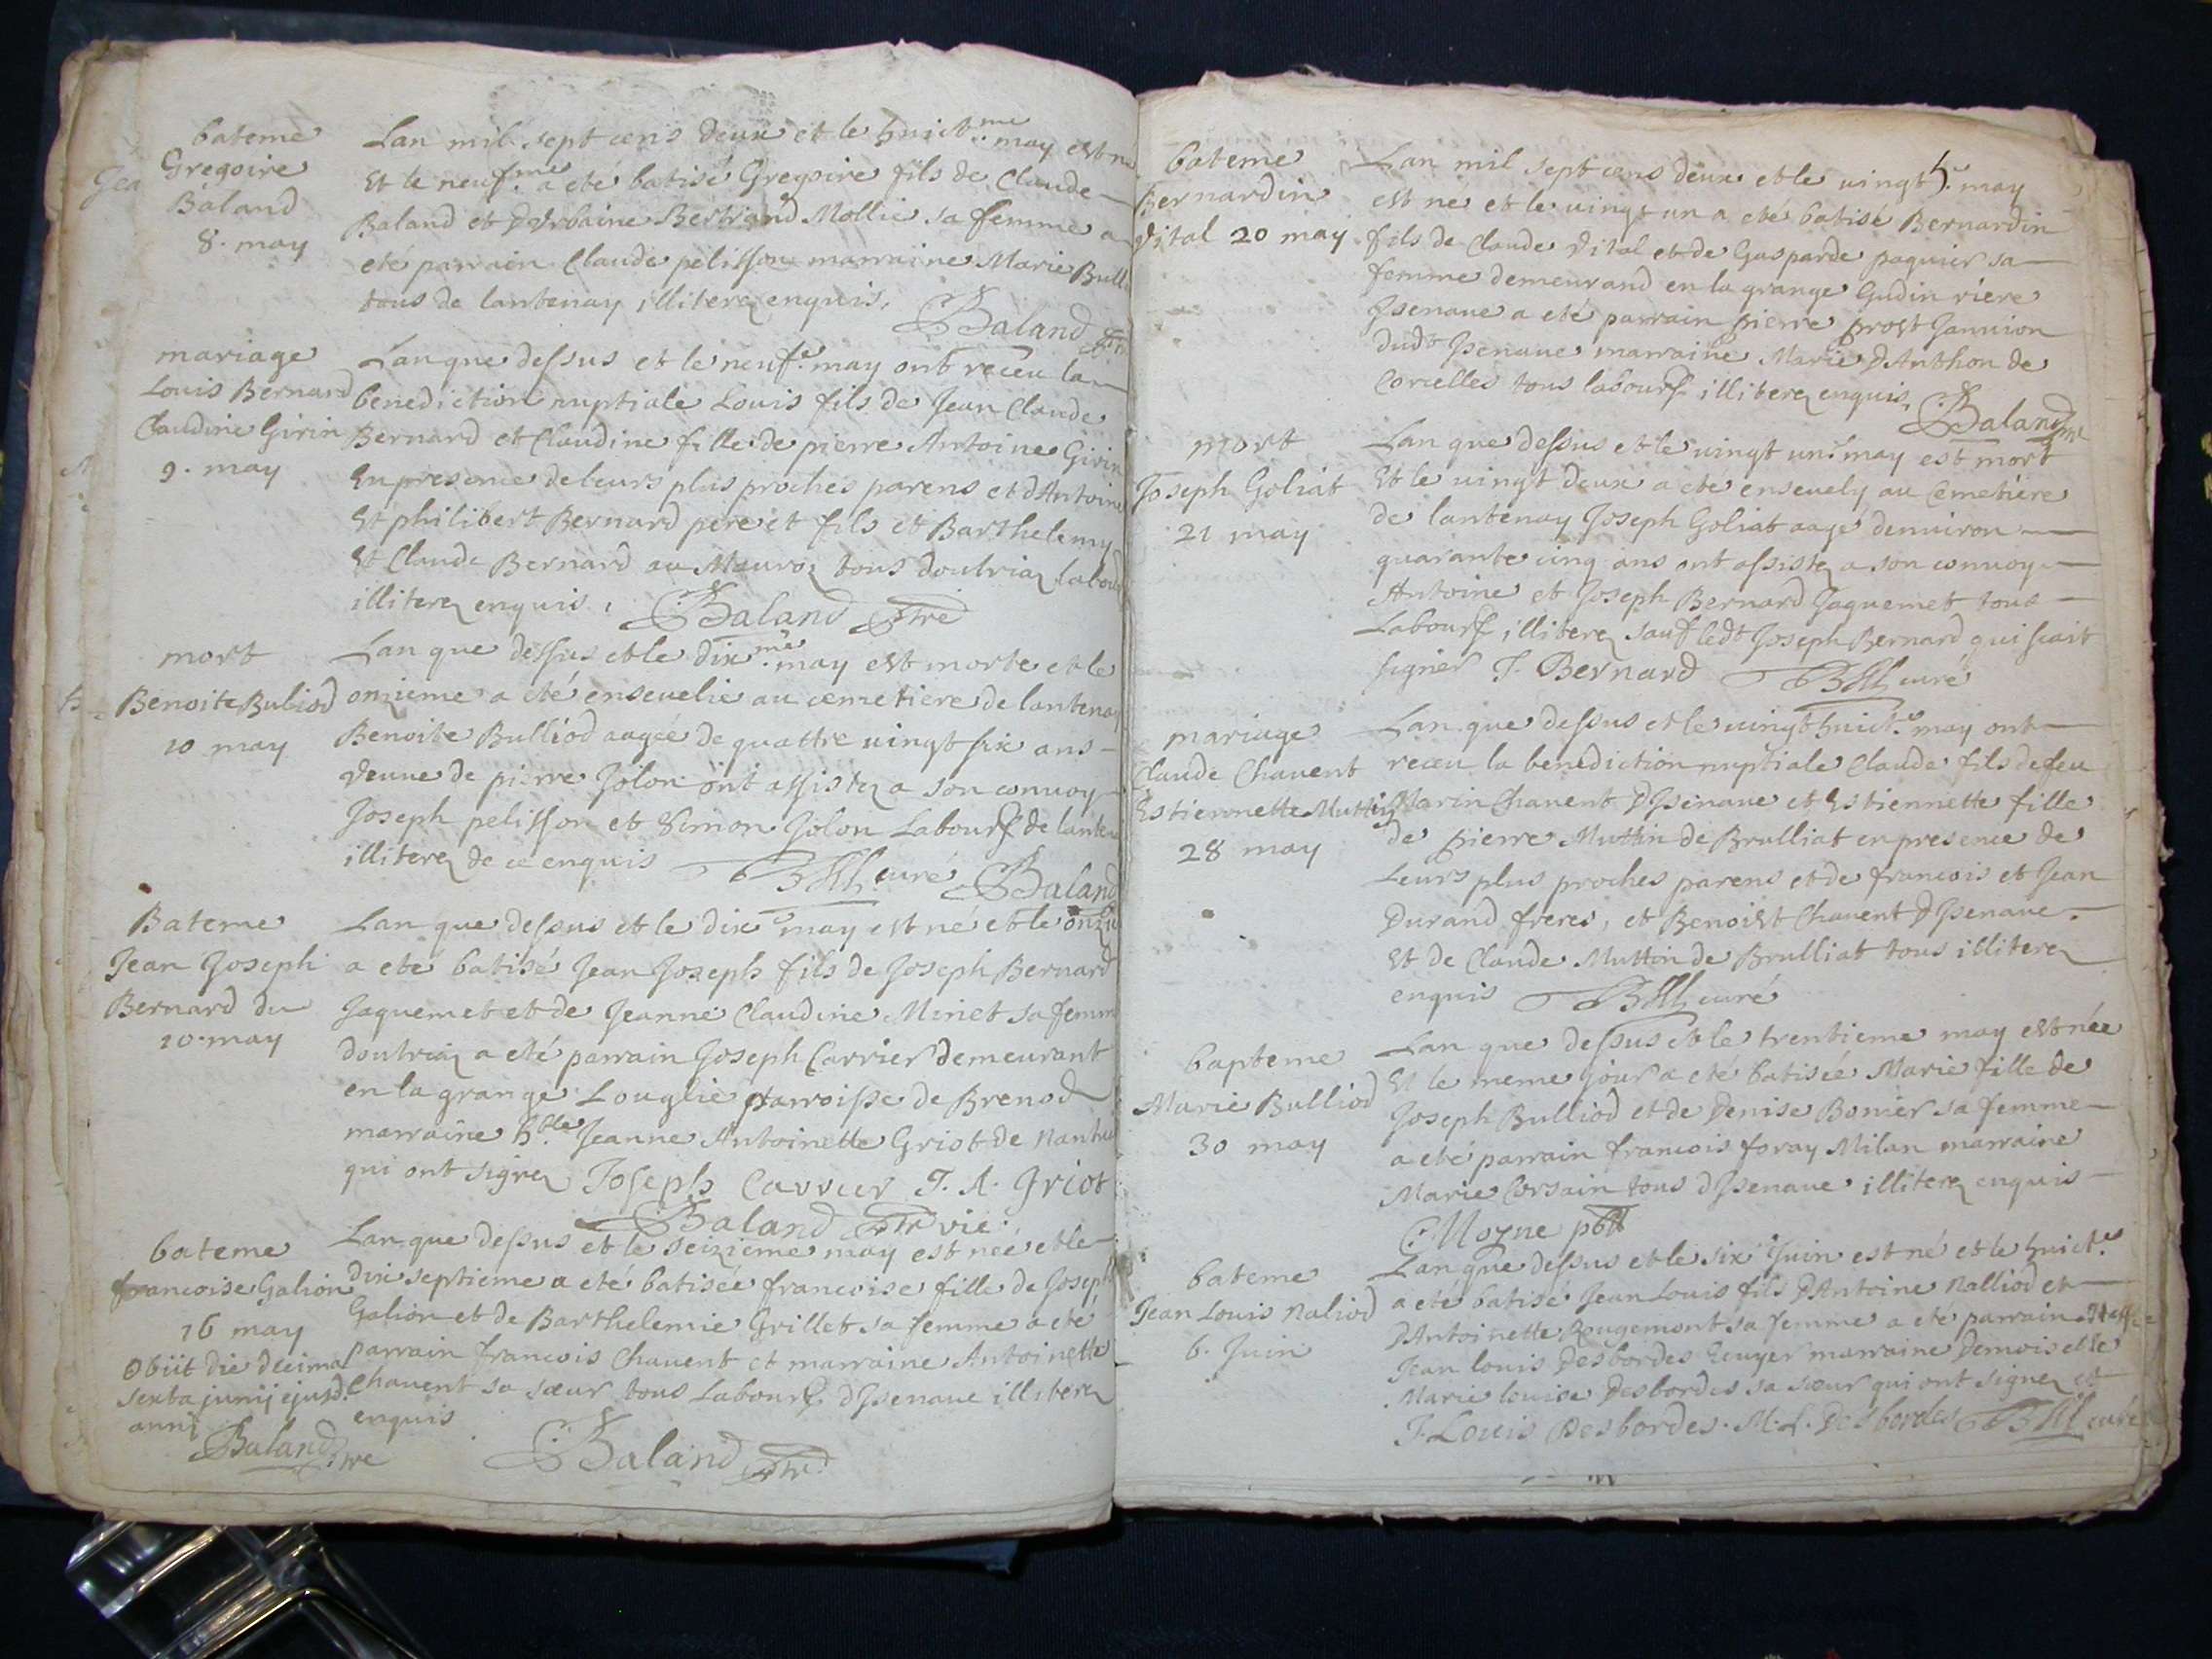 bateme
Gregoire
Baland
8. may
Lan mil sept cens deux et le huict.me may est n
Et le neuf.me a eté batisé Gregoire fils de Claude
Baland et DUrbaine Bertrand Mollie sa femme a
eté parrain Claude pelisson marraine Marie Bull
tous de lantenay illiterez enquis,
Baland
mariage
Louis Bernard
Claudine Girin
9. may
Lan que dessus et le neuf.e may ont receu la
benediction nuptiale Louis fils de Jean Claude
Bernard et Claudine fille de pierre Antoine Girin
En presence de leurs plus proches parens et dAntoine
Et philibert Bernard pere et fils et Barthelemy
Et Claude Bernard au Mauroz tous doutriaz labour
illiterez enquis, Baland ptre
mort
Benoite Buliod
10 may
Lan que dessus et le dix.me may est morte et le
onzieme a eté ensevelie au cemetiere de lantenay
Benoite Bulliod aagée de quattre vingt six ans
veuve de pierre Jolon ont assistez a son convoy
Joseph pelisson et Simon Jolon Labours de lanten
illiterez de ce enquis curé Baland
Bateme
Jean Joseph
Bernard du
10. may
Lan que dessus et le dix.e may est né et le onzie
a eté batisé Jean Joseph fils de Joseph Bernard
Jaquemet et de Jeanne Claudine Minet sa femm
doutriaz a eté parrain Joseph Carrier demeurant
en la grange Louglie parroisse de Brenod
marraine h.ble Jeanne Antoinette Griot de Nantu
qui ont signez Joseph Carrier J. A. Griot
Baland ptr vic.
bateme
francoise Galion
16 may
Obiit die decima
sexta junij ejusd.
anni
Baland ptre
Lan que dessus et le seizieme may est née et le
dix septieme a eté batisée francoise fille de Joseph
Galion et de Barthelemie Grillet sa femme a eté
parrain francois Chavent et marraine Antoinette
Chavent sa sœur tous Labours. dIsenave illiterez
enquis
Baland ptr.
bateme
Bernardin
Vital 20 may
Lan mil sept cens deux et le vingt.e may
est né et le vingt un a eté batisé Bernardin
fils de Claude Vital et de Gasparde paquier sa
femme demeurand en la grange Gudin riere
Isenave a eté parrain pierre prost Janvion
dudt Isenave marraine Marie DAnthon de
Corcelles tous labours illiterez enquis,
Baland
mort
Joseph Goliat
21 may
Lan que dessus et le vingt un.e may est mort
Et le vingt deux a eté ensevely au Cemetiere
de lantenay Joseph Goliat aagé denviron
quarante cinq ans ont assistez a son convoy
Antoine et Joseph Bernard Jaquemet tous
Labours illiterez sauf ledt Joseph Bernard qui scait
signer J. Bernard curé
mariage
Claude Chavent
Estiennette Muttin
28 may
Lan que dessus et le vingt huict.e may ont
receu la benediction nuptiale Claude fils de feu
Marin Chavent DIsenave et Estiennette fille
de pierre Muttin de Brulliat en presence de
Leurs plus proches parens et de francois et Jean
Durand freres, et Benoist Chavent DIsenave
Et de Claude Muttin de Brulliat tous illiterez
enquis curé
bapteme
Marie Bulliod
30 may
Lan que dessus et le trentieme may est née
Et le meme jour a eté batisée Marie fille de
Joseph Bulliod et de Denise Bonier sa femme
a eté parrain francois foray Milan marraine
Marie Corsain tous dIsenave illiterez enquis
Moyne pbtr
bateme
Jean Louis Naliod
6. Juin
Lan que dessus et le six.e Juin est né et le huict.e
a eté batisé Jean Louis fils DAntoine Nalliod et
DAntoinette Rougemont sa femme a eté parrain
Jean louis Desbordes Ecuyer marraine Demoiselle
Marie louise Desbordes sa sœur qui ont signez et
J. Louis Desbordes. M. L. Desbordes curé